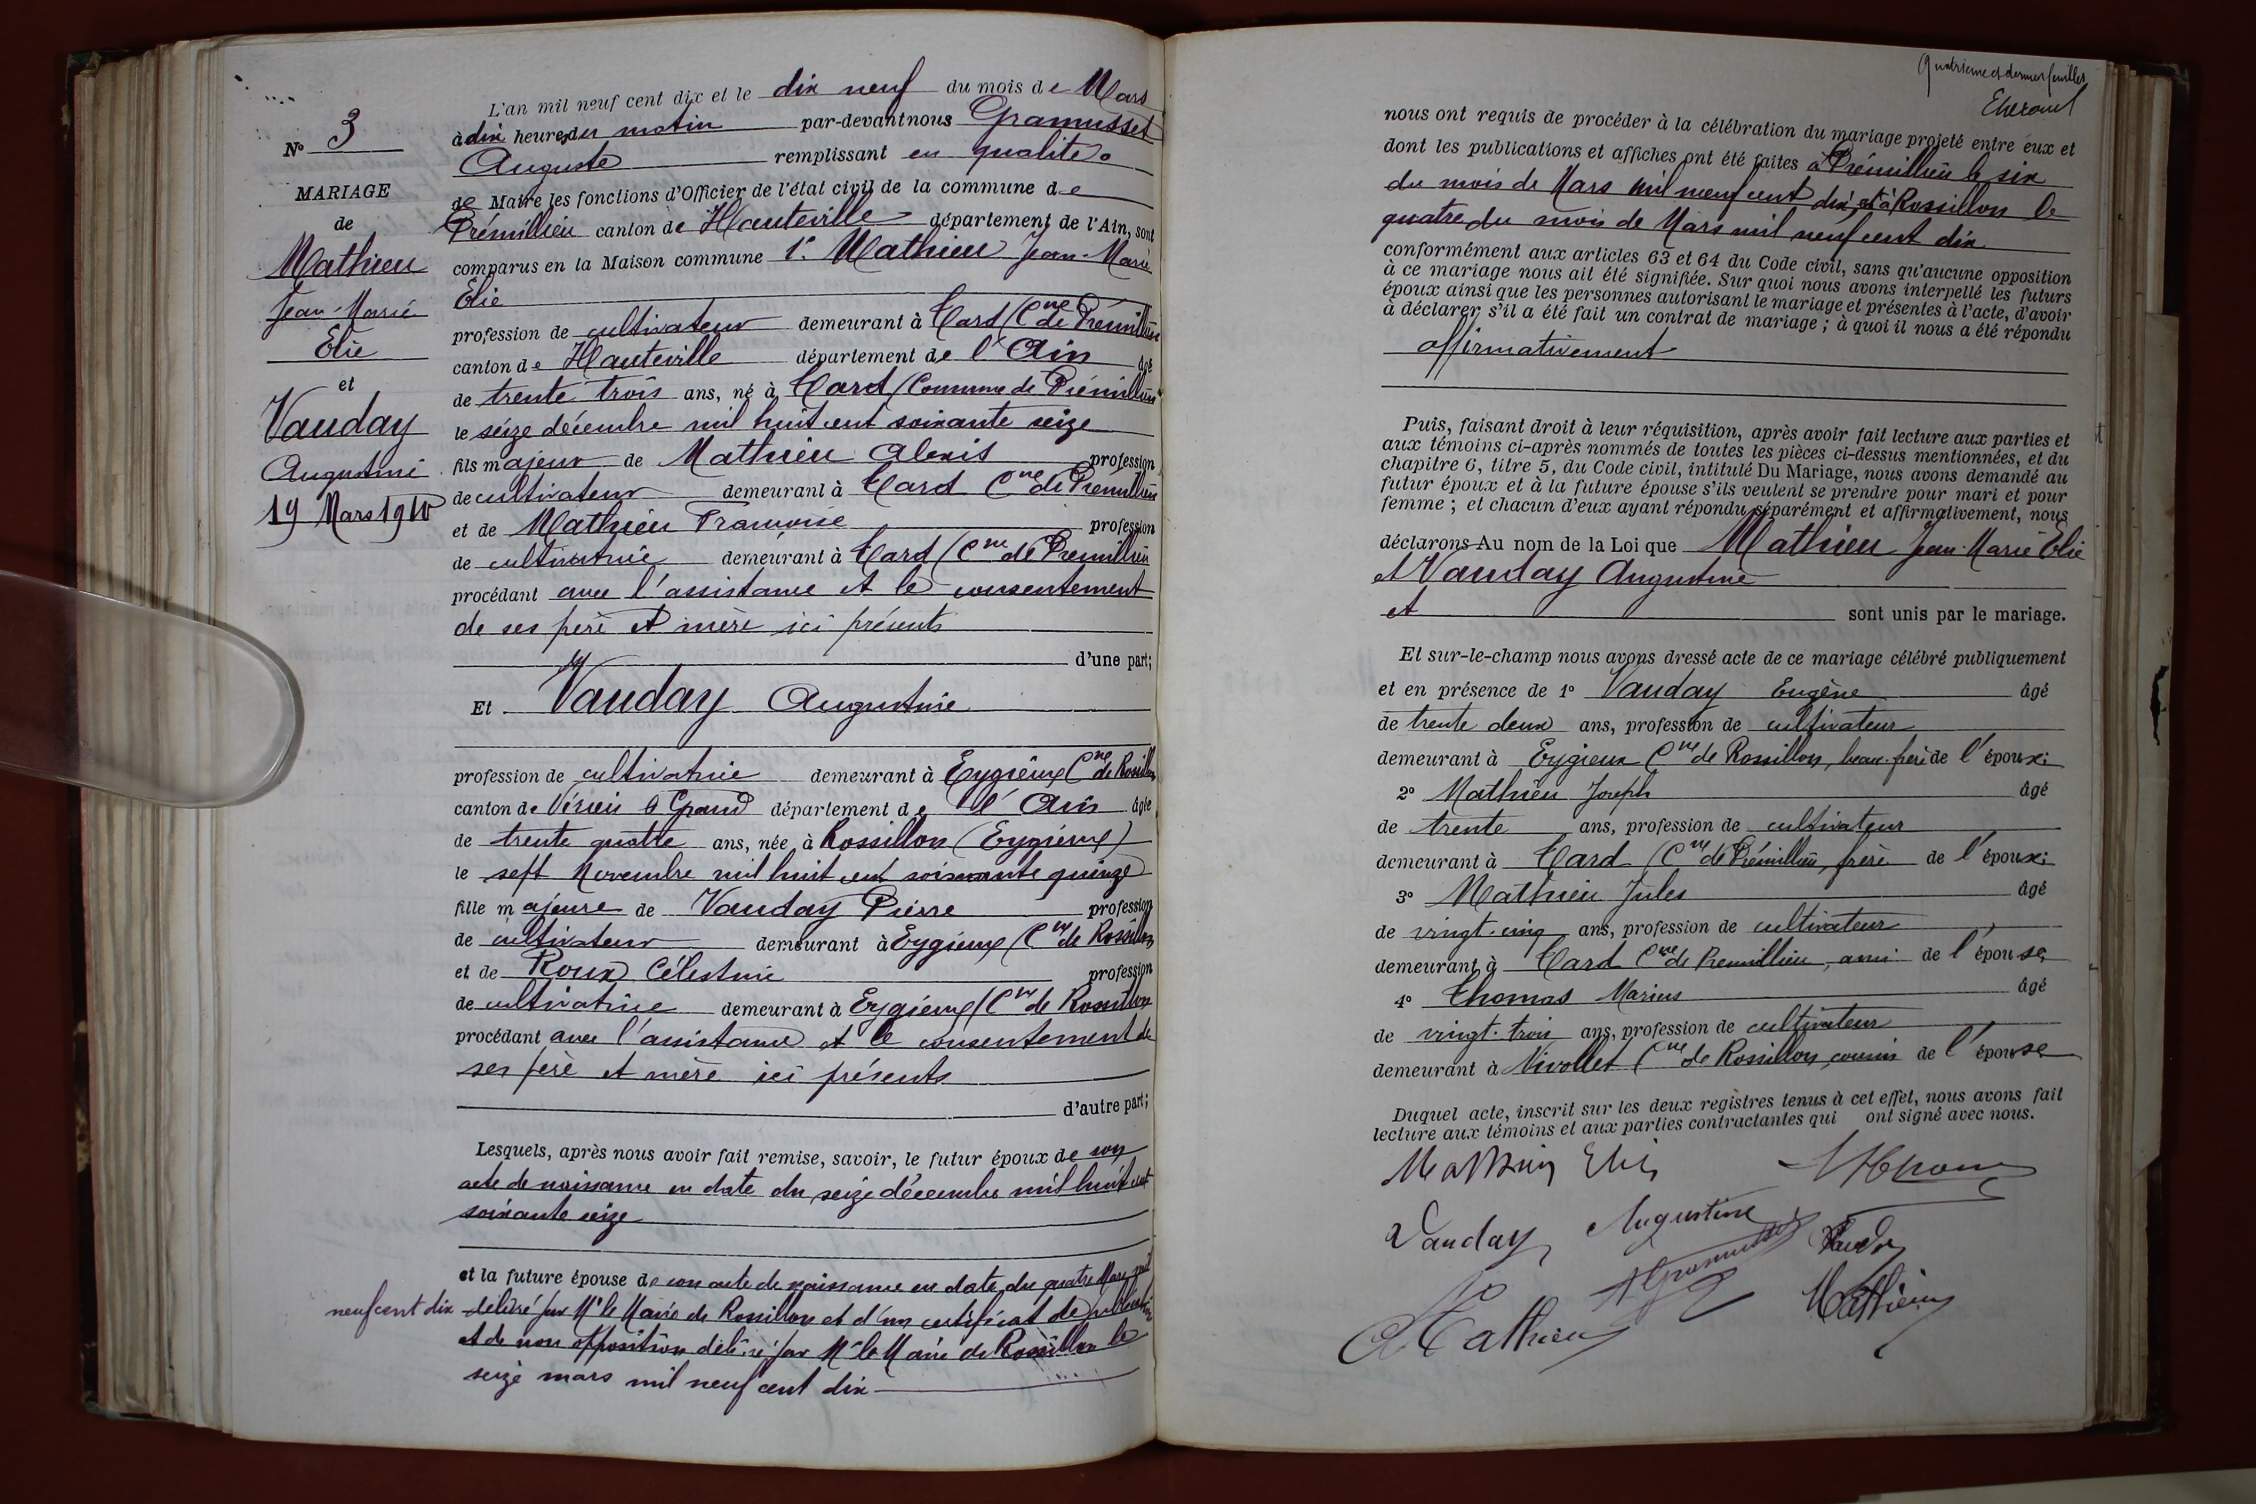 N° 3
MARIAGE
de
Mathieu
Jean-Marie
Elie
et
Vauday
Augustine
19 Mars 1910
L'an mil neuf cent dix et le dix neuf du mois de Mars
à dix heures du matin par-devant nous Gramusset
Auguste remplissant en qualité
de Maire les fonctions d'Officier de l'état civil de la commune de
Prémillieu canton de Hauteville département de l'Ain, sont
comparus en la Maison commune 1° Mathieu Jean-Marie
Elie
profession de cultivateur demeurant à Card (Cne de Prémillieu
canton de Hauteville département de l'Ain âgé
de trente trois ans, né à Card (Commune de Prémillieu
le seize décembre mil huit cent soixante seize
fils majeur de Mathieu Alexis profession
de cultivateur demeurant à Card Cne de Prémillieu
et de Mathieu Françoise profession
de cultivatrice demeurant à Card (Cne de Prémillieu
procédant avec l'assistance et le consentement
de ses père et mère ici présents
d'une part;
Et Vauday Augustine
profession de cultivatrice demeurant à Eygieux Cne de Rossillon
canton de Virieu le Grand département de l'Ain âgée
de trente quatre ans, née à Rossillon (Eygieux)
le sept Novembre mil huit cent soixante quinze
fille majeure de Vauday Pierre profession
de cultivateur demeurant à Eygieux (Cne de Rossillon
et de Roux Célestine profession
de cultivatrice demeurant à Eygieux (Cne de Rossillon
procédant avec l'assistance et le consentement de
ses père et mère ici présents
d'autre part;
Lesquels, après nous avoir fait remise, savoir, le futur époux de son
acte de naissance en date du seize décembre mil huit cent
soixante seize
et la future épouse de son acte de naissance en date du quatre Mars mil
neuf cent dix délivré par Mr le Maire de Rossillon et d'un certificat de publication
et de non opposition délivré par Mr le Maire de Rossillon le
seize mars mil neuf cent dix
Quatrième et dernier feuillet
nous ont requis de procéder à la célébration du mariage projeté entre eux et
dont les publications et affiches ont été faites à Prémillieu le six
du mois de Mars mil neuf cent dix et à Rossillon le
quatre du mois de Mars mil neuf cent dix
conformément aux articles 63 et 64 du Code civil, sans qu'aucune opposition
à ce mariage nous ait été signifiée. Sur quoi nous avons interpellé les futurs
époux ainsi que les personnes autorisant le mariage et présentes à l'acte, d'avoir
à déclarer s'il a été fait un contrat de mariage; à quoi il nous a été répondu
affirmativement
Puis, faisant droit à leur réquisition, après avoir fait lecture aux parties et
aux témoins ci-après nommés de toutes les pièces ci-dessus mentionnées, et du
chapitre 6, titre 5, du Code civil, intitulé Du Mariage, nous avons demandé au
futur époux et à la future épouse s'ils veulent se prendre pour mari et pour
femme; et chacun d'eux ayant répondu séparément et affirmativement, nous
déclarons Au nom de la Loi que Mathieu Jean-Marie Elie
et Vauday Augustine
et sont unis par le mariage.
Et sur-le-champ nous avons dressé acte de ce mariage célébré publiquement
et en présence de 1° Vauday Eugène âgé
de trente deux ans, profession de cultivateur
demeurant à Eygieux Cne de Rossillon, beau-frère de l'époux;
2° Mathieu Joseph âgé
de trente ans, profession de cultivateur
demeurant à Card (Cne de Prémillieu, frère de l'époux;
3° Mathieu Jules âgé
de vingt-cinq ans, profession de cultivateur
demeurant à Card Cne de Prémillieu, ami de l'épouse
4° Thomas Marius âgé
de vingt-trois ans, profession de cultivateur
demeurant à Nivollet Cne de Rossillon, cousin de l'épouse
Duquel acte, inscrit sur les deux registres tenus à cet effet, nous avons fait
lecture aux témoins et aux parties contractantes qui ont signé avec nous.
Mathieu Elie
Vauday Augustine
AGramusset
Mathieu
Mathieu